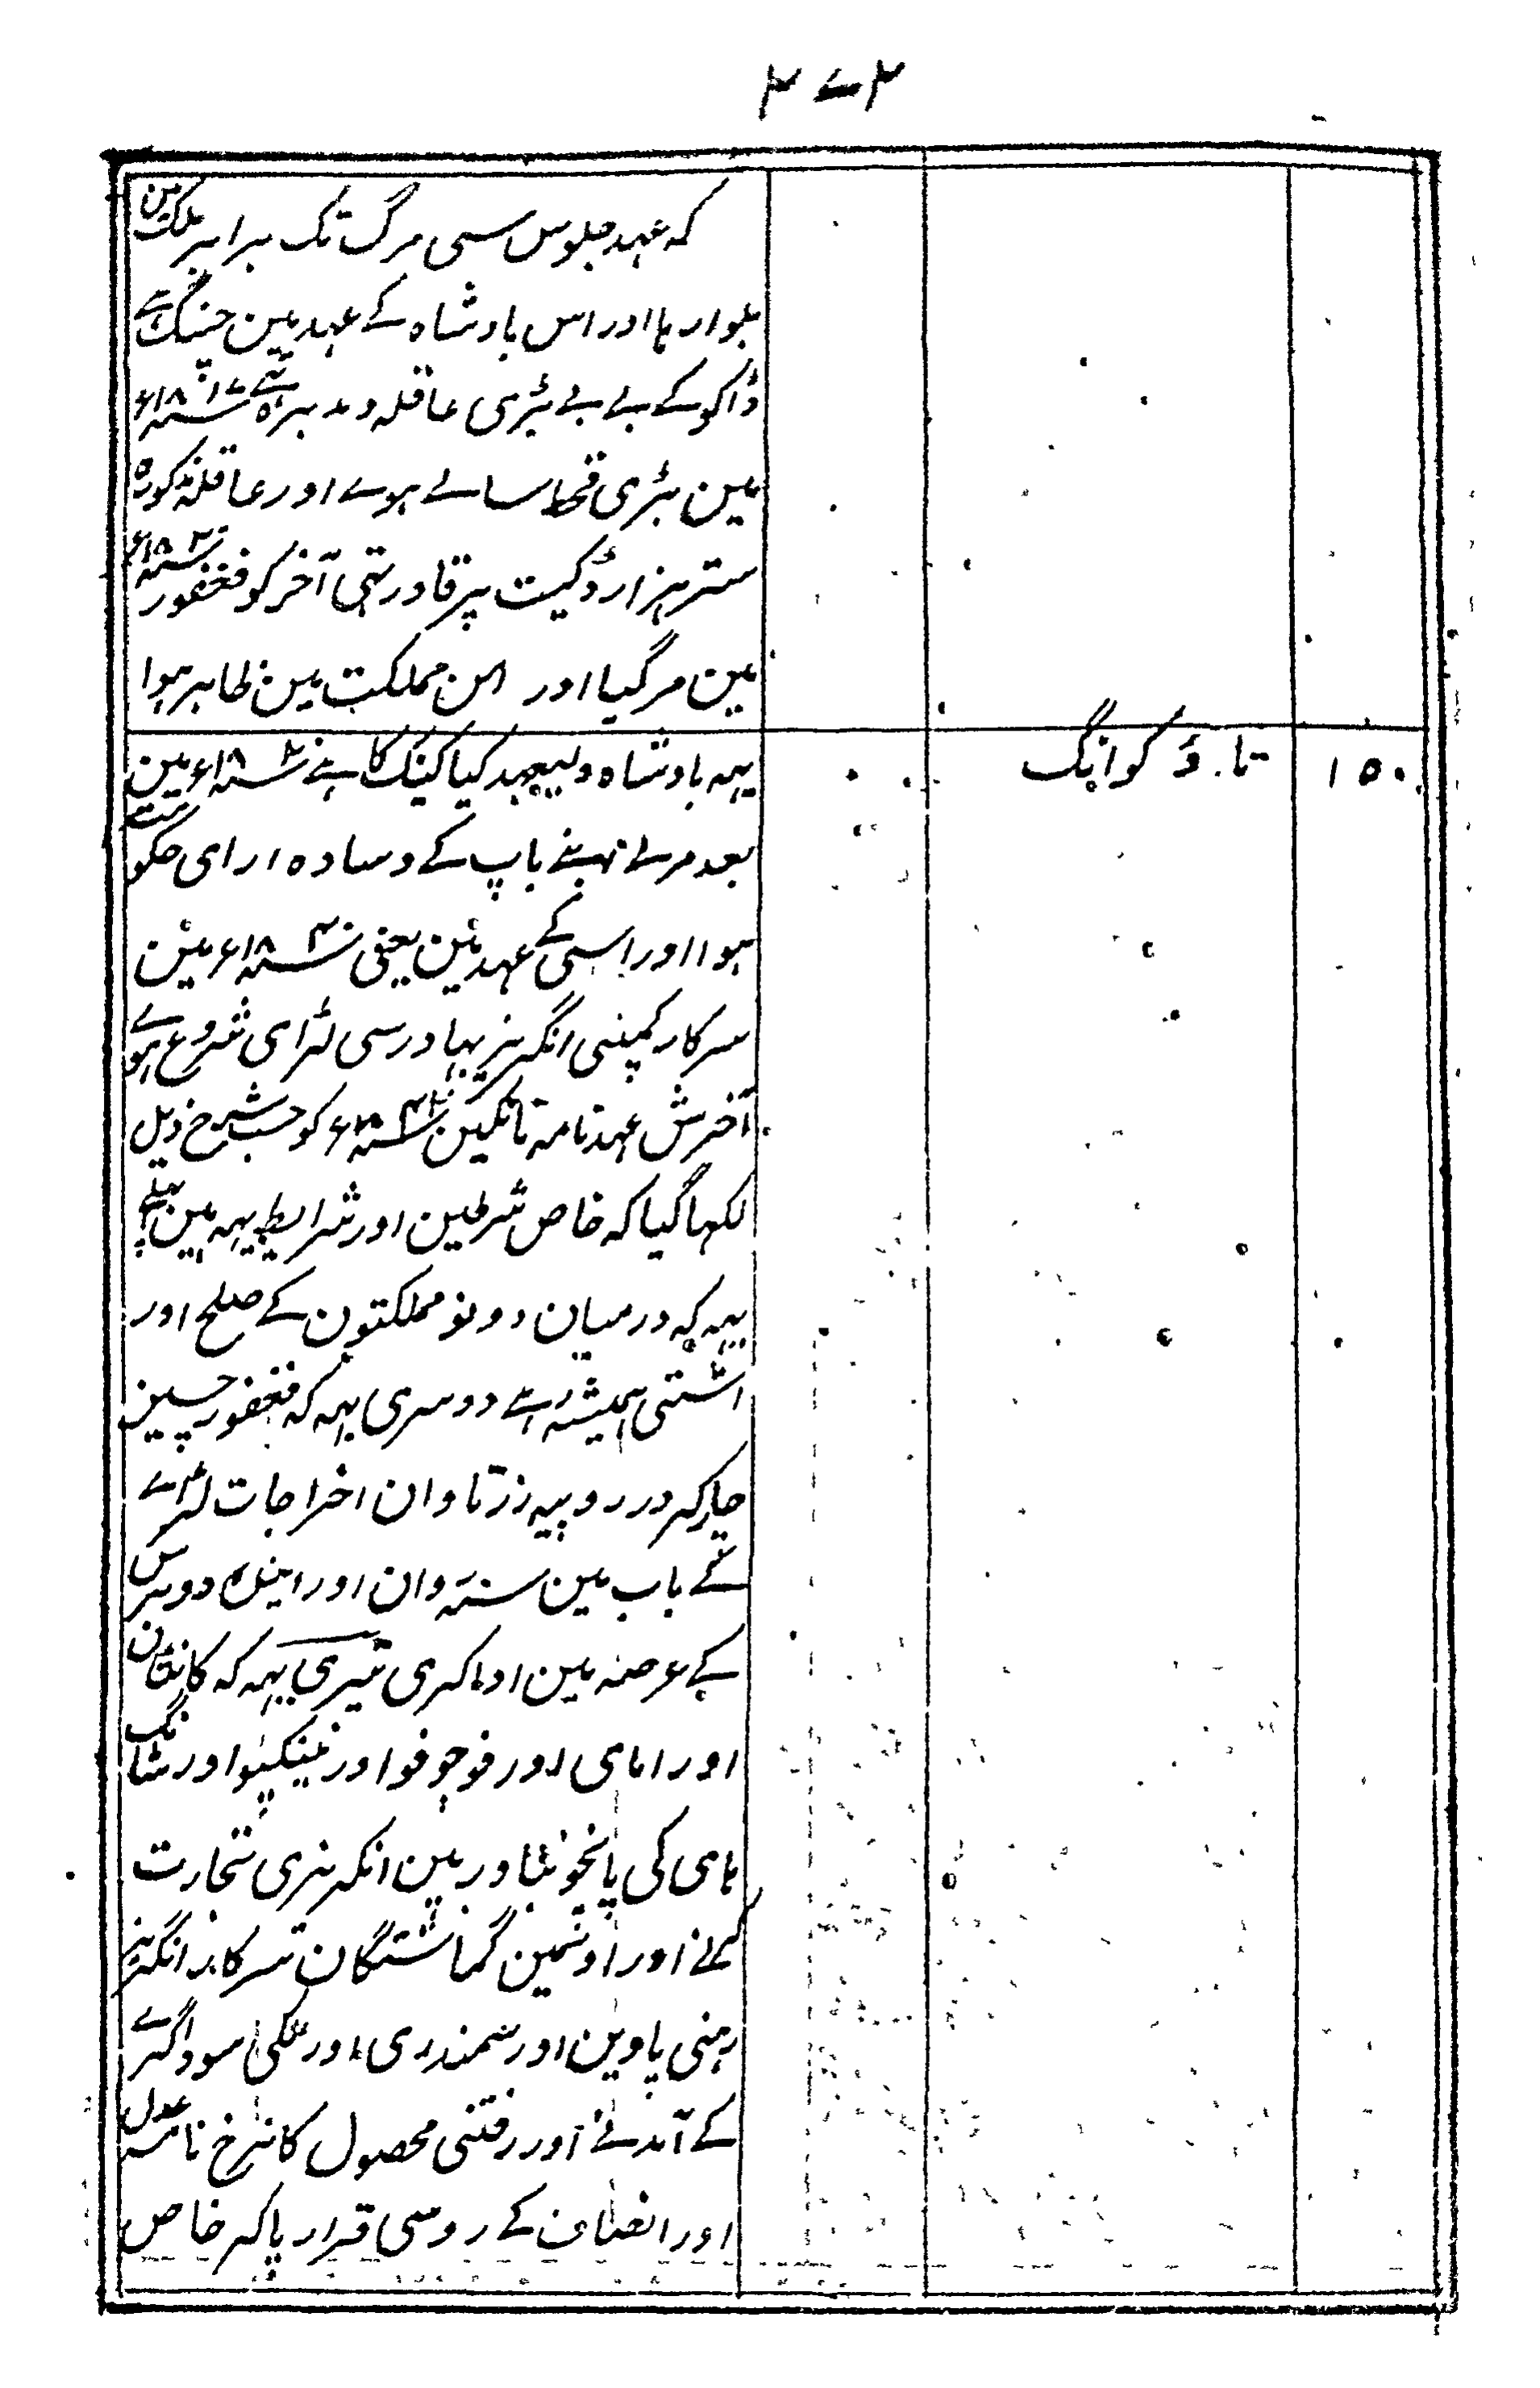 ۳۷۳
کہ عہد جلوس سی مرگ تک برابر ملک مین
بلوا رہا اور اس بادشاہ کے عہد مین چینگ کے
ڈاکو کے بے بے بڑی عاقلہ و مدبرہ تہے سنہ ۱۸۱۷ء
مین بڑی قحط سالے ہوے اور عاقلہ مذکورہ
ستر ہزار ڈکیت پر قادر تہی آخر کو فغفور سنہ ۱۸۲۰ء
مین مر گیا اور امن مملکت مین ظاہر ہوا
۱۵۰ تاؤ کوانگ
یہہ بادشاہ ولیعہد کیا کینک کا ہے سنہ ۱۸۲۰ء مین
بعد مرنے اپنے باپ کے وسادہ ارای حکومت
ہوا اور اسی کے عہد مین یعنی سنہ ۱۸۴۰ء مین
سرکار کمپنی انگریز بہادر سی لڑای شروع ہوے
آخرش عہدنامہ نانکین سنہ ۱۸۴۲ء کو حسب شرح ذیل
لکہا گیا کہ خاص شرطین اور شرایط یہہ ہین پہلے
یہہ کہ درمیان دونو مملکتون کے صلح اور
اشتی ہمیشہ رہے دوسری یہہ کہ فغفور چین
چار کرور روپیہ زر تاوان اخراجات لڑاے
کے باب مین سنہ روان اور اینده دو برس
کے عرصہ مین ادا کری تیسری یہہ کہ کانٹان
اور امای اور فوچو فو اور نینکپو اور شانگ
ہای کی پانچو بنادر مین انگریزی تجارت
کہلے اور اونمین گماشتگان سرکار انگریز
رہنی پاوین اور سمندری اور ملکی سوداگرے
کے آمدنے اور رفتنی محصول کا نرخ نامہ عدل
اور انصاف کے روسی قرار پا کر خاص